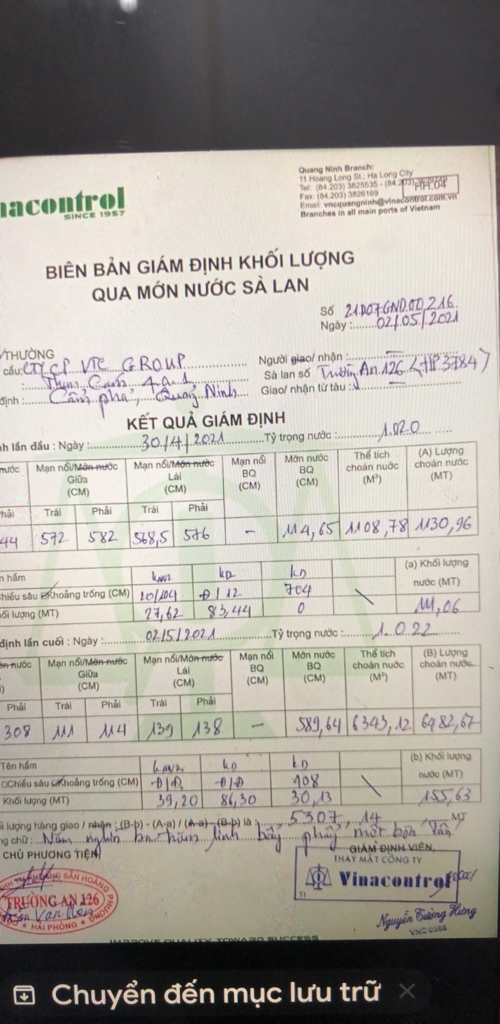 nacontrol
SINCE 1957
Quang Ninh Branch:
11 Hoang Long St., Ha Long City
Tel: (84.203) 3825535 - (84.203)
Fax: (84.203) 3826169
Email: vncquangninh@vinacontrol.com.vn
Branches in all main ports of Vietnam
HH.04
BIÊN BẢN GIÁM ĐỊNH KHỐI LƯỢNG
QUA MỚN NƯỚC SÀ LAN
Số 21D07GND00216
Ngày: 02/05/2021
/THƯỜNG
cầu: CTY CP VTC GROUP
Người giao/ nhận :
Sà lan số Trường An 126 (HP 3784)
định : Cẩm phả, Quảng Ninh
Giao/ nhận từ tàu :
KẾT QUẢ GIÁM ĐỊNH
nh lần đầu : Ngày : 30/4/2021 Tỷ trọng nước : 1.020
nước Mạn nổi/Mớn nước Giữa (CM) Mạn nổi/Mớn nước Lái (CM) Mạn nổi BQ (CM) Mớn nước BQ (CM) Thể tích choán nước (M³) (A) Lượng choán nước (MT)
Phải Trái Phải Trái Phải
44 572 582 568,5 576 - 114,65 1108,78 1130,96
n hầm (a) Khối lượng nước (MT)
Chiều sâu Khoảng trống (CM) 704
ối lượng (MT) 27,62 83,44 0 111,06
định lần cuối : Ngày : 02/5/2021 Tỷ trọng nước : 1.022
ớn nước Mạn nổi/Mớn nước Giữa (CM) Mạn nổi/Mớn nước Lái (CM) Mạn nổi BQ (CM) Mớn nước BQ (CM) Thể tích choán nước (M³) (B) Lượng choán nước (MT)
Phải Trái Phải Trái Phải
308 111 114 139 138 - 589,64 6343,12 6482,67
Tên hầm (b) Khối lượng nước (MT)
Chiều sâu Khoảng trống (CM) 408
Khối lượng (MT) 39,20 86,30 30,13 155,63
ối lượng hàng giao / nhận : (B-b) - (A-a) / (A-a) - (B-b) là : 5307,14 MT
ng chữ : Năm nghìn ba trăm linh bảy phẩy một bốn Tấn
CHỦ PHƯƠNG TIỆN
GIÁM ĐỊNH VIÊN,
THAY MẶT CÔNG TY
Vinacontrol
TRƯỜNG AN 126
HẢI PHÒNG
Nguyễn Tường Hưng
IMPROVE QUALITY TOWARD SUCCESS
Chuyển đến mục lưu trữ ×